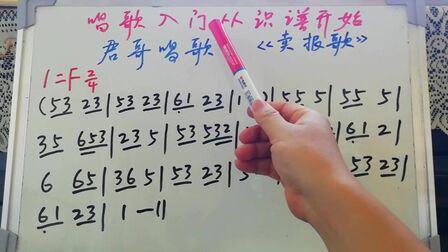 唱歌入门从识谱开始
君哥唱歌 《卖报歌》
1=F 2/4
(53 23|53 23|61 23|1 55 5|55 5|
35 653|23 5|53 532| 61 2|
6 65|36 5|53 23|5 53 23|
61 23|1 —‖